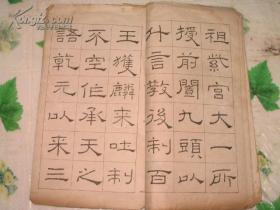 祖紫宮大一所
授前闓九頭以
什言教後制百
王獲麟來吐制
不空作承天之
語乾元以來三